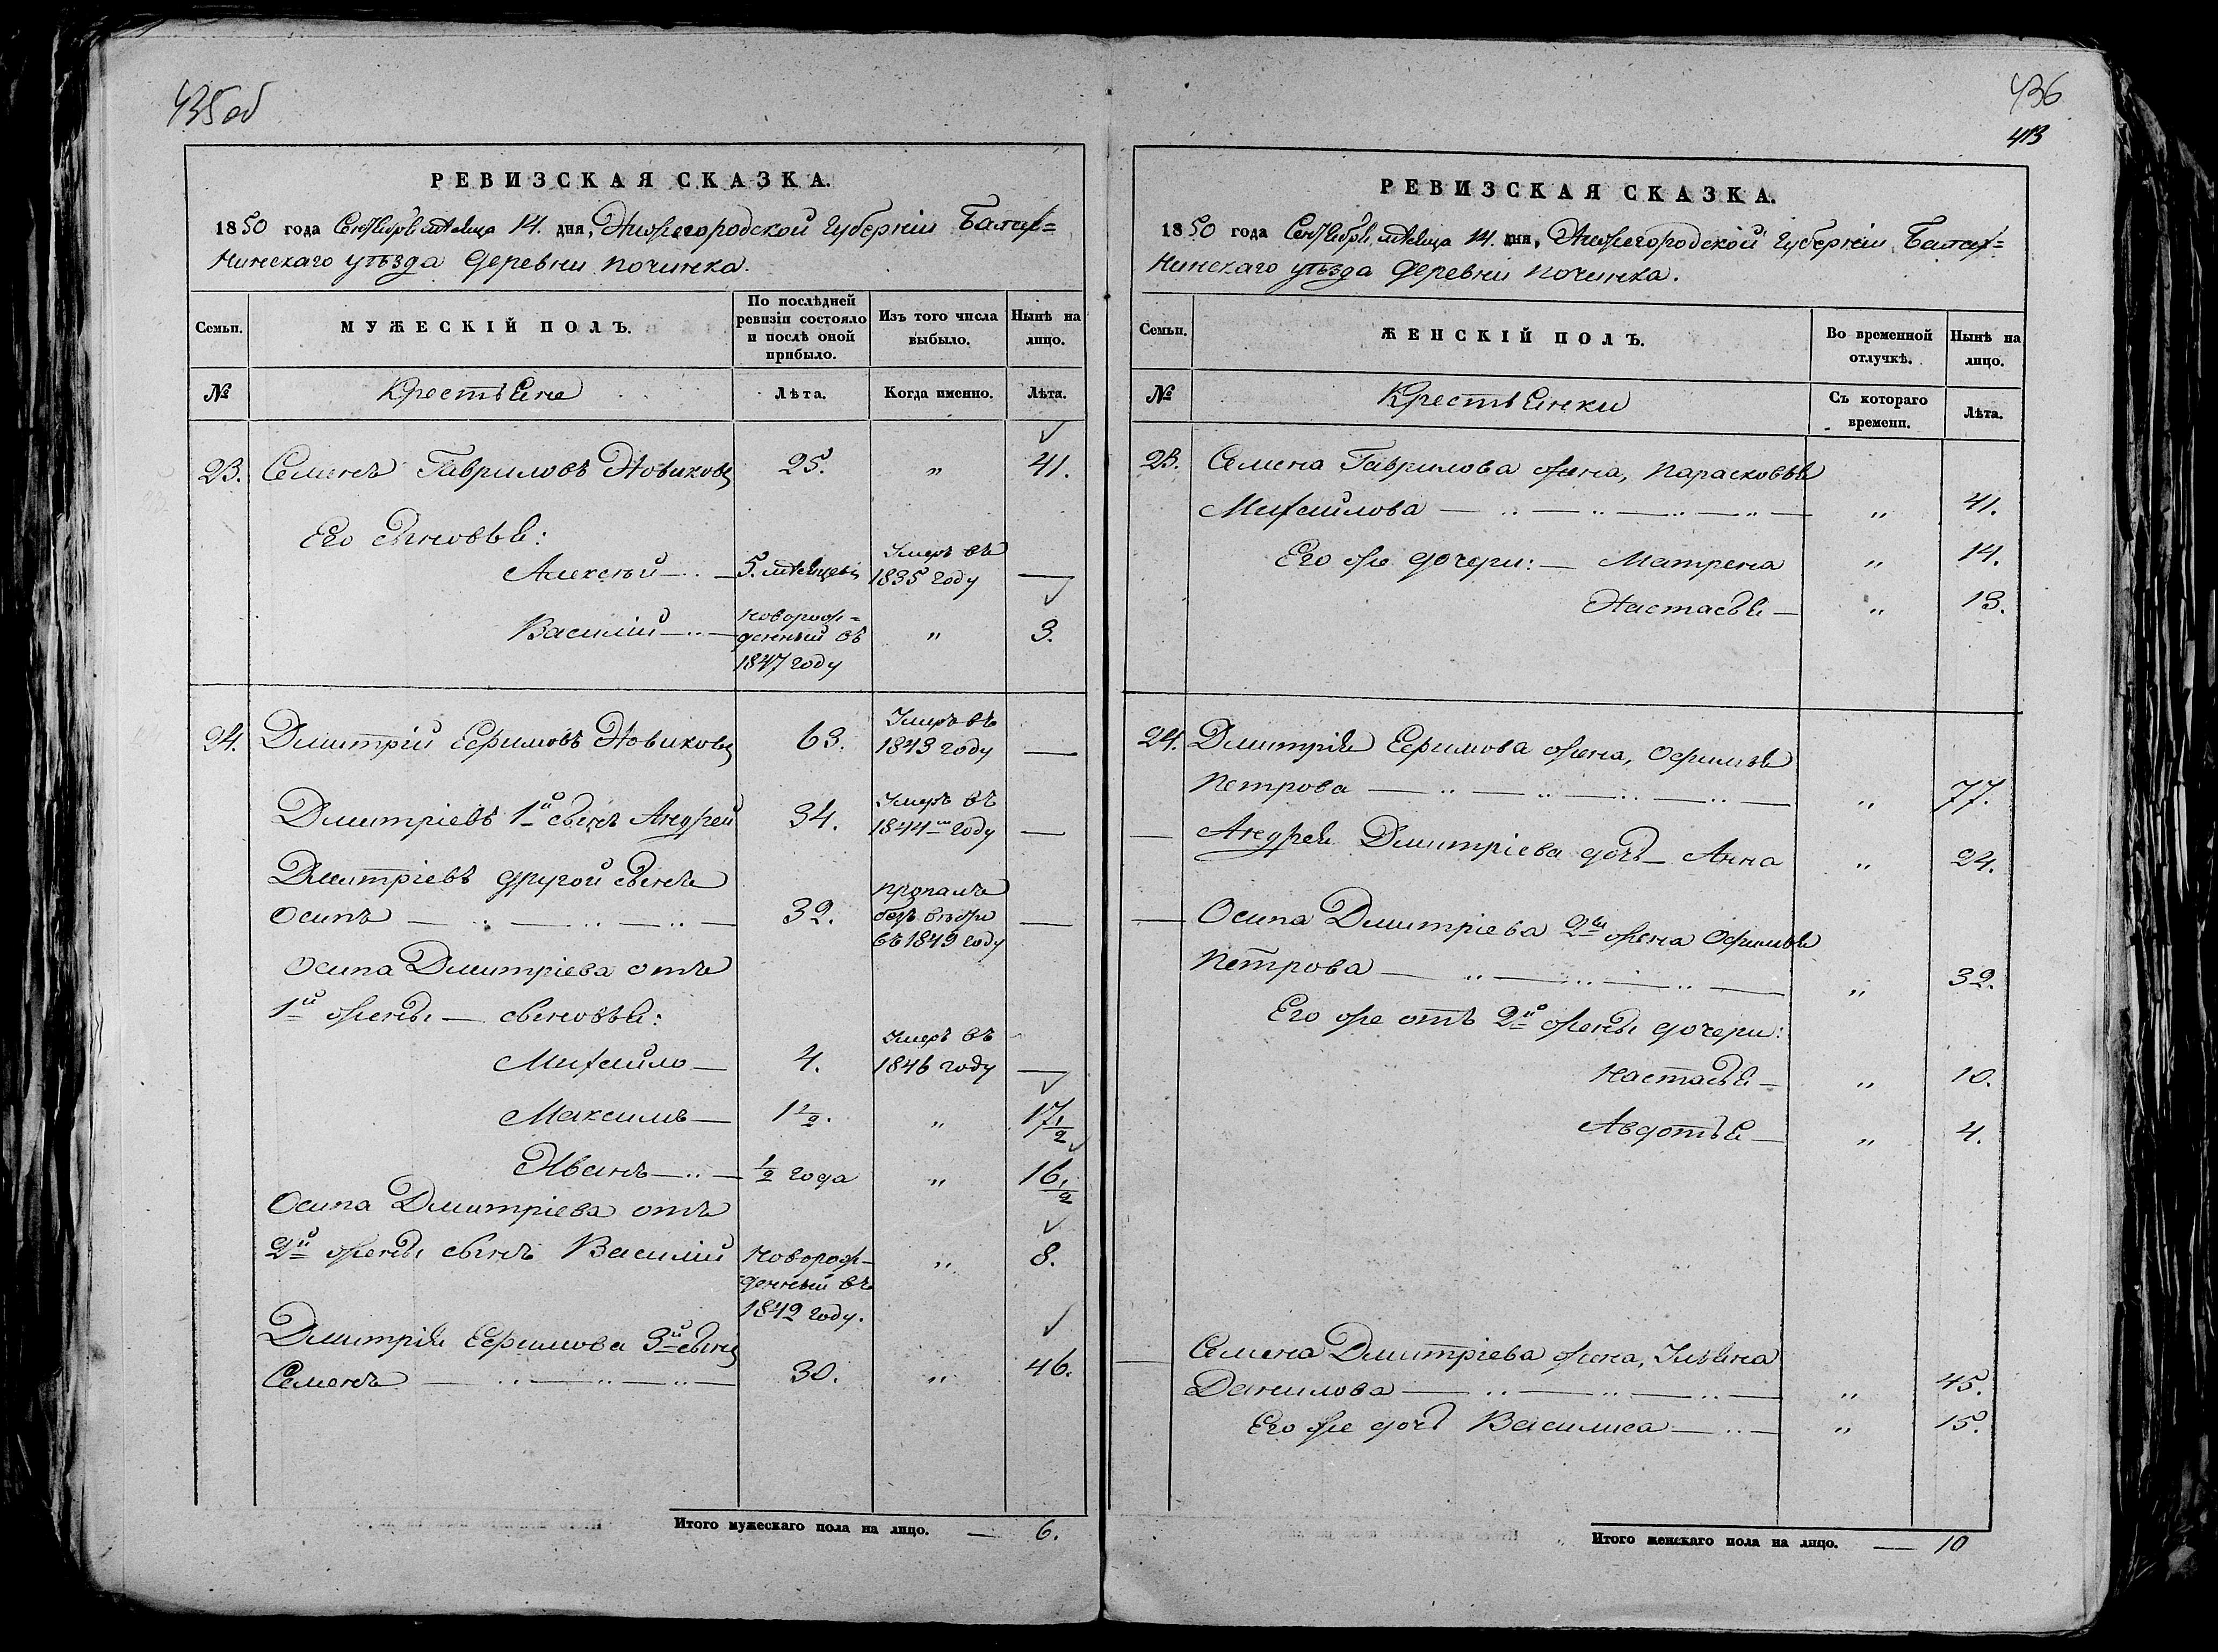 435 об
РЕВИЗСКАЯ СКАЗКА.
1850 года Сентября мѣсяца 14. дня, Нижегородской Губерніи Балах=
нинскаго уѣзда деревни Починка.
Семьи.
МУЖЕСКІЙ ПОЛЪ.
По послѣдней
ревизіи состояло
и послѣ оной
прибыло.
Изъ того числа
выбыло.
Нынѣ на
лицо.
№
Крестьяне
Лѣта.
Когда именно.
Лѣта.
23. Семенъ Гавриловъ Новиковъ 25. " 41.
Его сыновья:
Алексѣй — 5. мѣсяцевъ
Умеръ въ
1835 году —
Василій —
новорож=
денный въ
1847 году
" 3.
24. Дмитрій Ефимовъ Новиковъ 63.
Умеръ въ
1843 году —
Дмитріевъ 1й сынъ Андрей 34.
Умеръ въ
1844м году —
Дмитріевъ другой сынъ
Осипъ — 32.
пропалъ
безъ вѣсти
въ 1849 году —
Осипа Дмитріева отъ
1й жены — сыновья:
Михайло — 4.
Умеръ въ
1846 году —
Максимъ — 1 1/2. " 17 1/2
Иванъ — 1/2 года " 16 1/2
Осипа Дмитріева отъ
2й жены сынъ Василій
новорож-
денный въ
1842 году.
" 8.
Дмитрія Ефимова 3й сынъ
Семенъ — 30. " 46.
Итого мужескаго пола на лицо. — 6.
436
413
РЕВИЗСКАЯ СКАЗКА.
1850 года Сентября мѣсяца 14. дня, Нижегородской Губерніи Балах=
нинскаго уѣзда деревни Починка.
Семьи.
ЖЕНСКІЙ ПОЛЪ.
Во временной
отлучкѣ.
Нынѣ на
лицо.
№
Крестьянки
Съ котораго
времени.
Лѣта.
23. Семена Гаврилова жена, Парасковья
Михайлова — " 41.
Его же дочери: — Матрена " 14.
Настасья — " 13.
24. Дмитрія Ефимова жена, Офимья
Петрова — " 77.
— Андрея Дмитріева дочь — Анна " 24.
— Осипа Дмитріева 2я жена Офимья
Петрова — " 32.
Его же отъ 2й жены дочери:
Настасья — " 10.
Авдотья — " 4.
— Семена Дмитріева жена, Ульяна
Данилова — " 45.
Его же дочь Василиса — " 15.
Итого женскаго пола на лицо. — 10